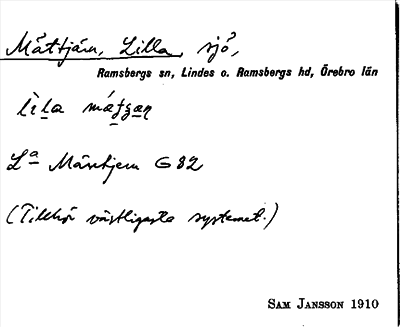 Måttjärn, Lilla, sjö,
Ramsbergs sn, Lindes o. Ramsbergs hd, Örebro län
lìla
Lª G 82
(Tillhör västligaste systemet.)
SAM JANSSON 1910